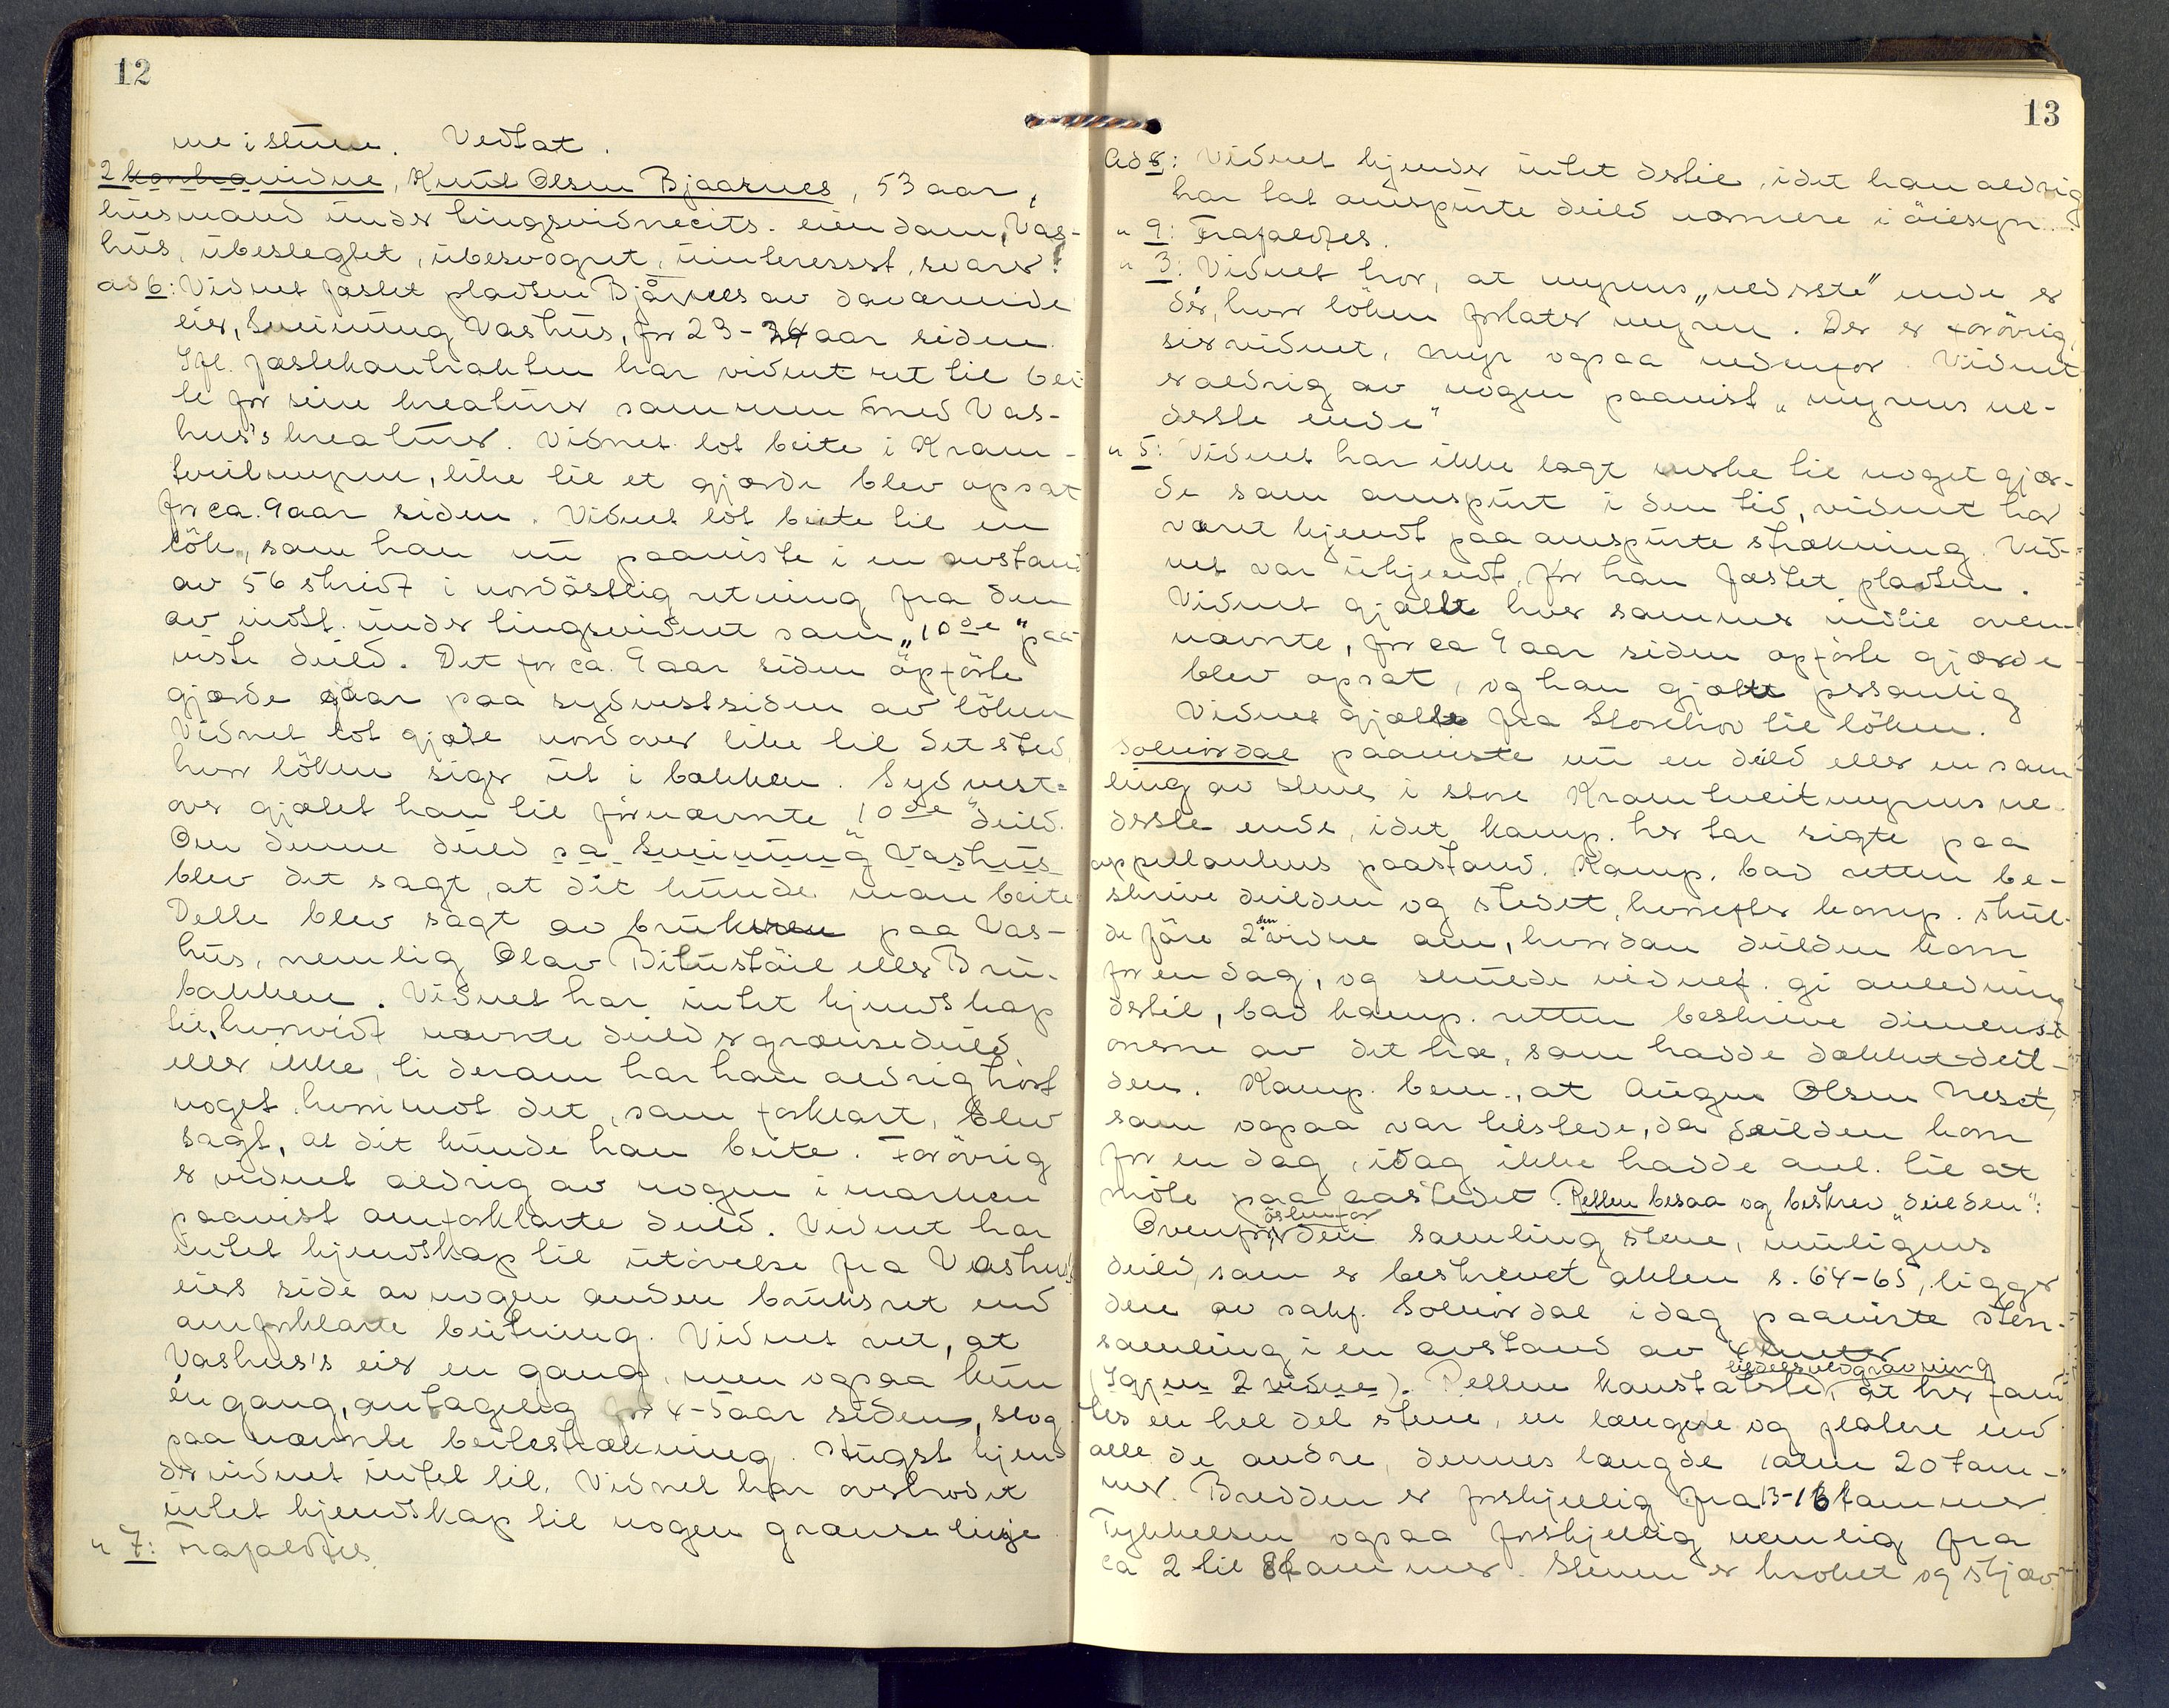 12
me i stuen. Vedtat.
2 kontravidne, Knut Olsen Bjaarnes, 53 aar,
husmand under tingsvidnecits. eiendom, Vas-
hus, ubeslegtet, ubesvogret, uinteressert, svarer:
ad 6: Vidnet fæstet pladsen Bjårnes av daværende
eier, Sveinung Vashus, for 23-24 aar siden.
Ifl. fæstekontrakten har vidnet ret til bei-
te for sine kreaturer sammen med Vas-
hus's kreaturer. Vidnet lot beite i Kram-
tveitmyren, like til et gjærde blev opsat
for ca. 9 aar siden. Vidnet lot beite til en
løk, som han nu paaviste i en avstand
av 56 skridt i nordøstlig retning fra den
av indst. under tingsvidnet som "10de" paa-
viste deild. Det for ca. 9 aar siden opførte
gjærde gaar paa sydvestsiden av løken
Vidnet lot gjæte nordover like til det sted,
hvor løken siger ut i bakken. Sydvest-
over gjætet han til førnævnte "10de" deild.
Om denne deild sa Sveinung Vashus
blev det sagt, at dit kunde man beite
Dette blev sagt av brukeren paa Vas-
hus, nemlig Olav Bitustøil eller Bru-
bakken. Vidnet har intet kjendskap
til, hvorvidt nævnte deild er grænsedeild
eller ikke, ti derom har han aldrig hørt
noget hvorimot det, som forklart, blev
sagt, at dit kunde han beite. Forøvrig
er vidnet aldrig av nogen i marken
paavist omforklarte deild. Vidnet har
intet kjendskap til utøvelse fra Vashus's
eiers side av nogen anden bruksret end
omforklarte beitning. Vidnet vet, at
Vashus's eier en gang, men ogsaa kun
én gang, antagelig for 4-5 aar siden, slog
paa nævnte beitestrækning. Hugst kjen-
der vidnet intet til. Vidnet har overhodet
intet kjendskap til nogen grænselinje.
" 7: Frafaldtes.
13
Ad 8: Vidnet kjender intet dertil, idet han aldrig
har tat omspurte deild nærmere i øiesyn.
" 9: Frafaldtes.
" 3: Vidnet tror, at myrens "nederste" ende er
dér, hvor løken forlater myren. Der er forøvrig,
sier vidnet, myr ogsaa nedenfor. Vidnet
er aldrig av nogen paavist "myrens ne-
derste ende"
" 5: Vidnet har ikke lagt merke til noget gjær-
de som omspurt i den tid, vidnet har
været kjendt paa omspurte strækning. Vid-
net var ukjendt, før han fæstet pladsen.
Vidnet gjætte hver sommer indtil oven-
nævnte, for ca 9 aar siden opførte gjærde
blev opsat, og han gjætte personlig
Vidnet gjætte fra Storehov til løken.
Solnørdal paaviste nu en deild eller en sam-
ling av stene i store Kramtveitmyrens ne-
derste ende, idet komp. her tar sigte paa
appellantens paastand. Komp. bad retten be-
skrive deilden og stedet, hvorefter komp. skul-
de føre 2den vidne om, hvordan deilden kom
for en dag, og skulde vidnef. gi anledning
dertil, bad komp. retten beskrive dimensi-
onerne av det træ, som hadde dækket deil-
den. Komp. bem., at Augen Olsen Neset,
som ogsaa var tilstede, da deilden kom
for en dag, idag ikke hadde anl. til at
møte paa aastedet. Retten besaa og beskrev "deilden":
Ovenfor østenfor den samling stene, muligens
deild, som er beskrevet akten s. 64-65, ligger
den av sakf. Solnørdal idag paaviste sten-
samling i en avstand av 6 meter
(Igjen 2 vidne). Retten konstaterte, tildels ved gravning at her fand-
tes en hel del stene, en længere og flatere end
alle de andre, dennes længde 1 alen 20 tom-
mer. Bredden er forskjellig fra 13-16 tommer
Tykkelsen ogsaa forskjellig nemlig fra
ca 2 til 8 tommer. Stenen er kroket og skjæv